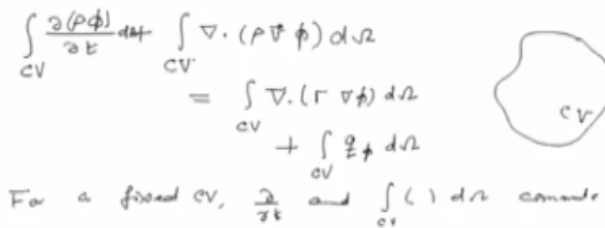 ∫_CV ∂(ρϕ)/∂t dΩ + ∫_CV ∇·(ρv⃗ϕ) dΩ
= ∫_CV ∇·(Γ∇ϕ) dΩ
+ ∫_CV q_ϕ dΩ
CV
For a fixed CV, ∂/∂t and ∫_CV ( ) dΩ commute